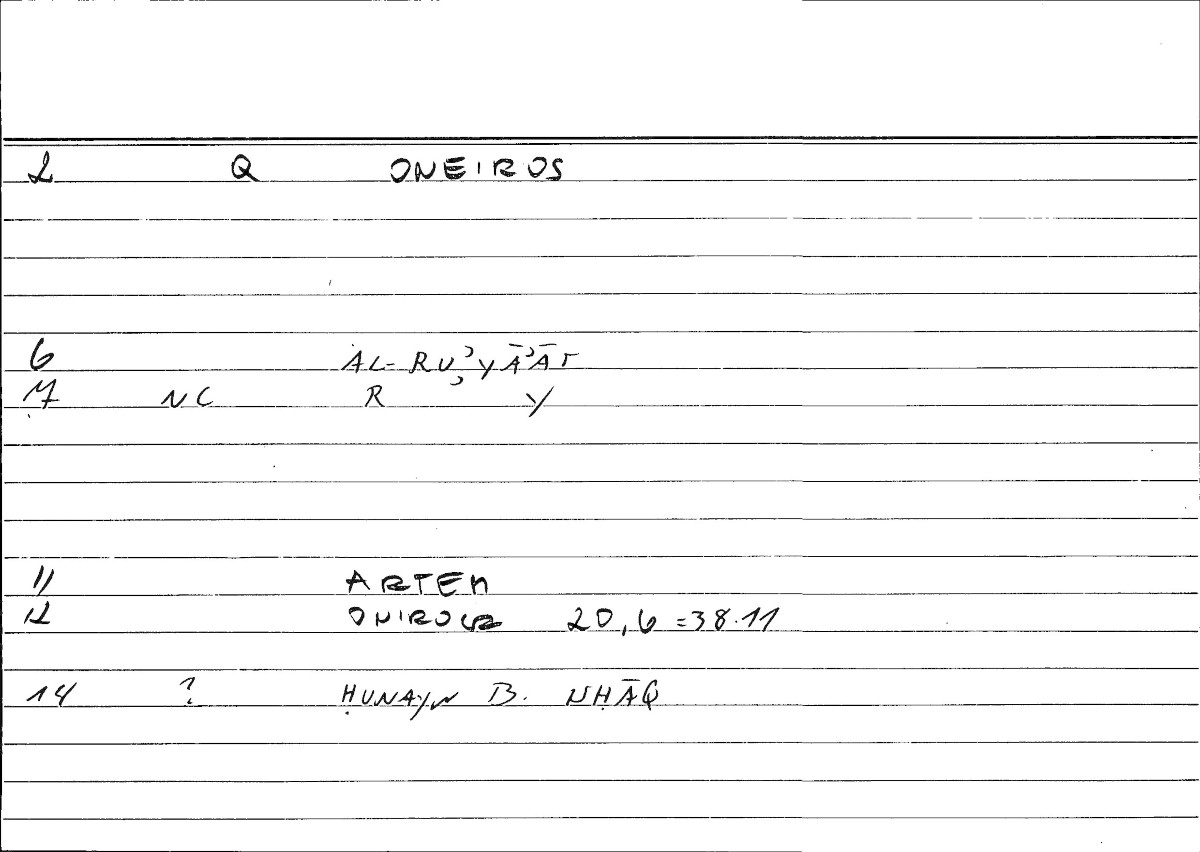 2 Q ONEIROS
6 AL-RU'YĀ'ĀT
7 NC R Y
11 ARTEM
12 20,6 =38.11
14 ? ḤUNAYN B. ISḤĀQ